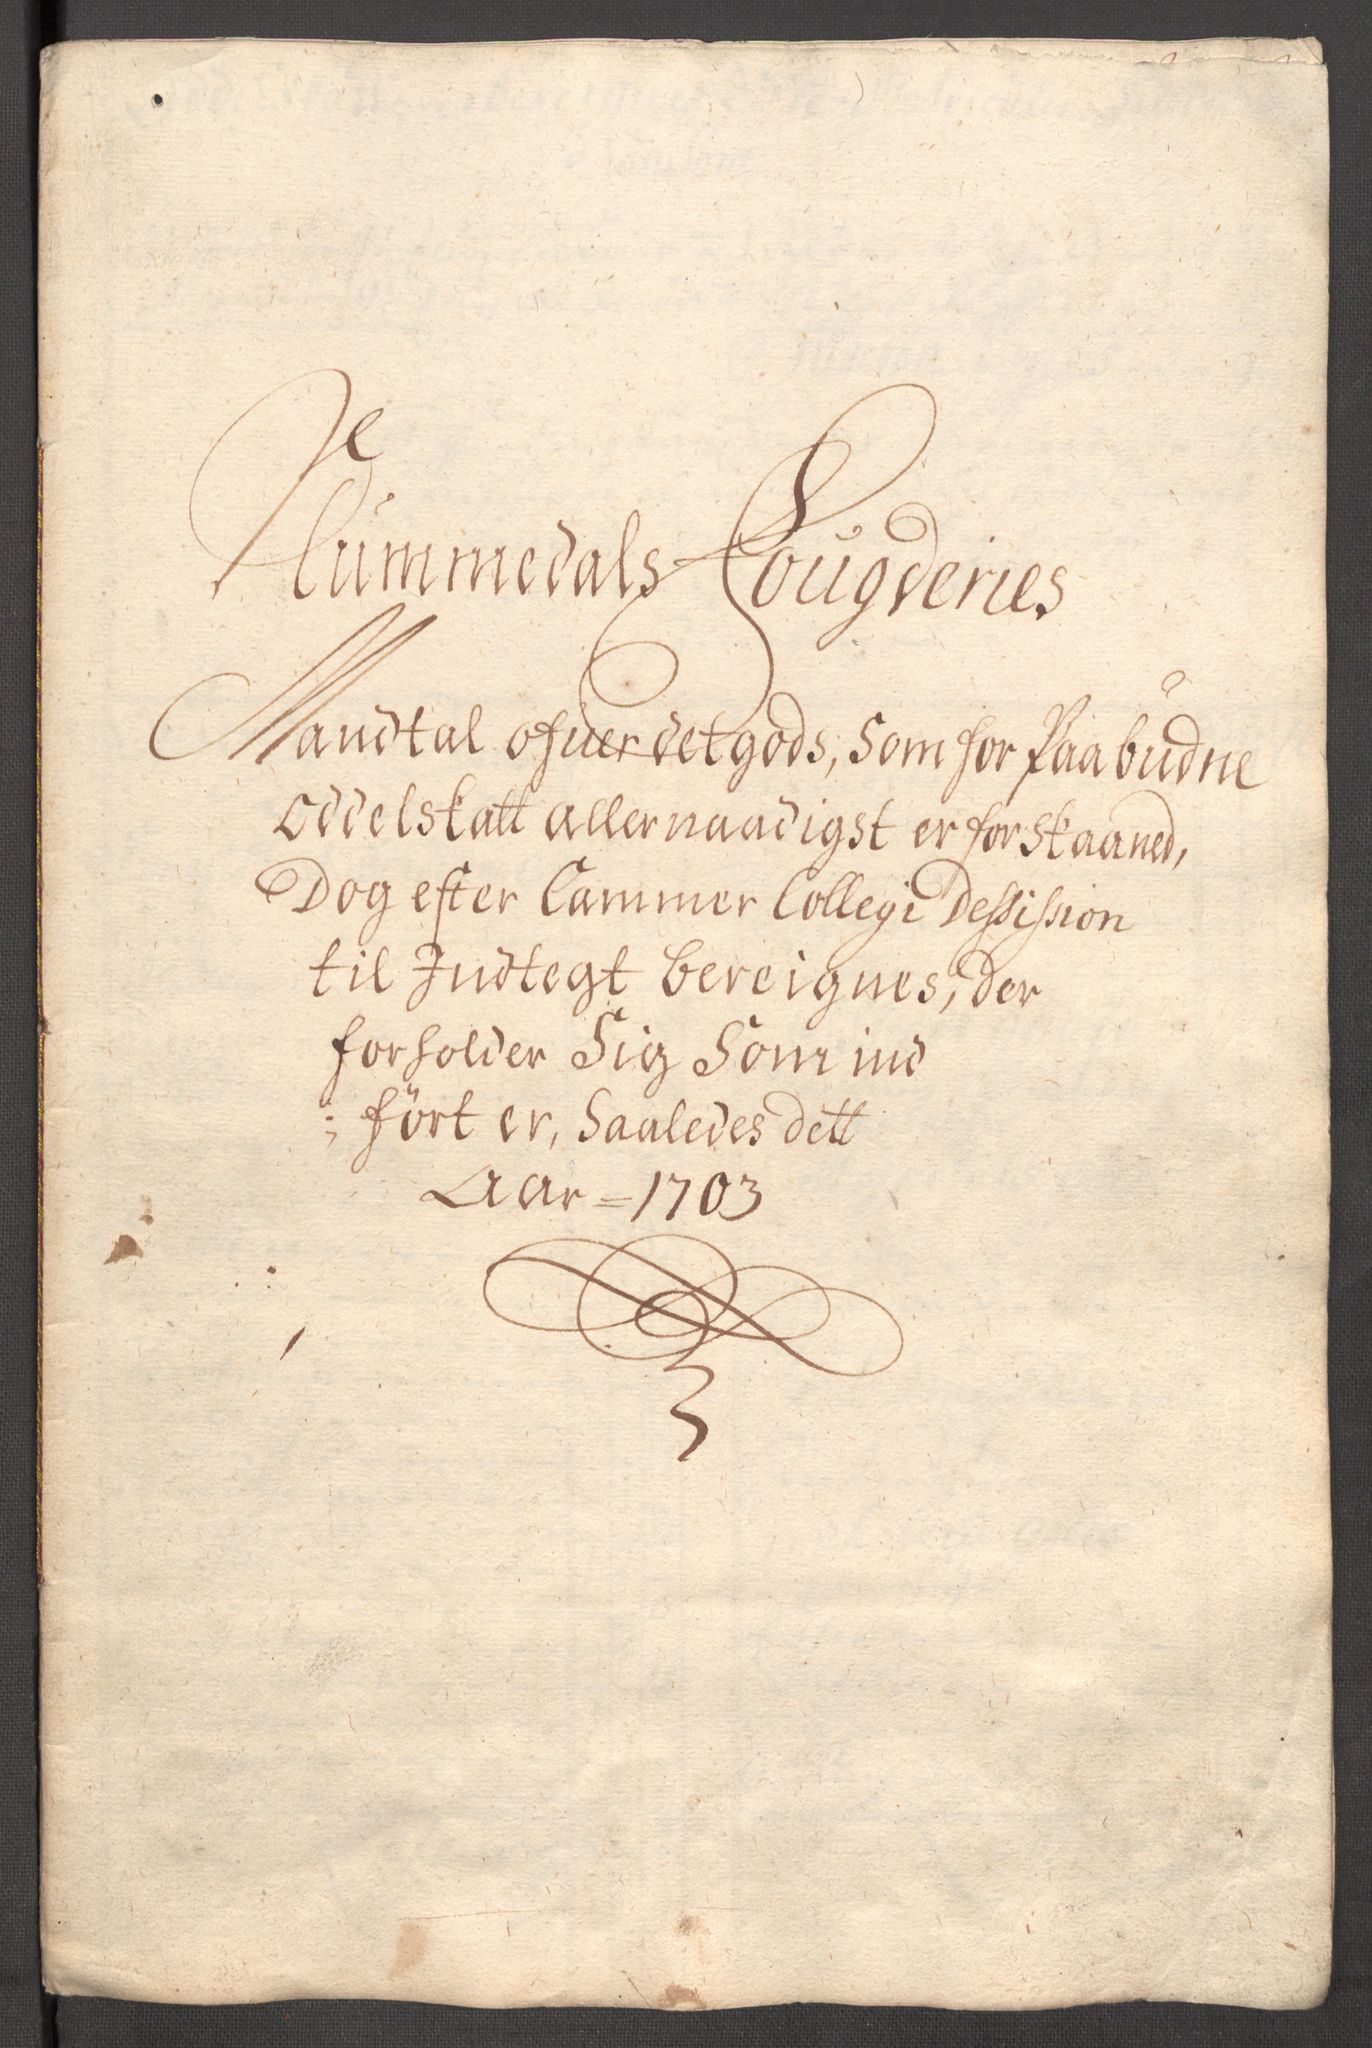 Nummedals Fougderies
Mandtal ofuer det gods, som for Paabudne
Oddelskatt allernaadigst er forskaaned,
Dog efter Cammer Collegi Dessission
til Indtegt bereignes, der
forholder Sig Som ind
:; fört er, Saaledes dett
Aar = 1703